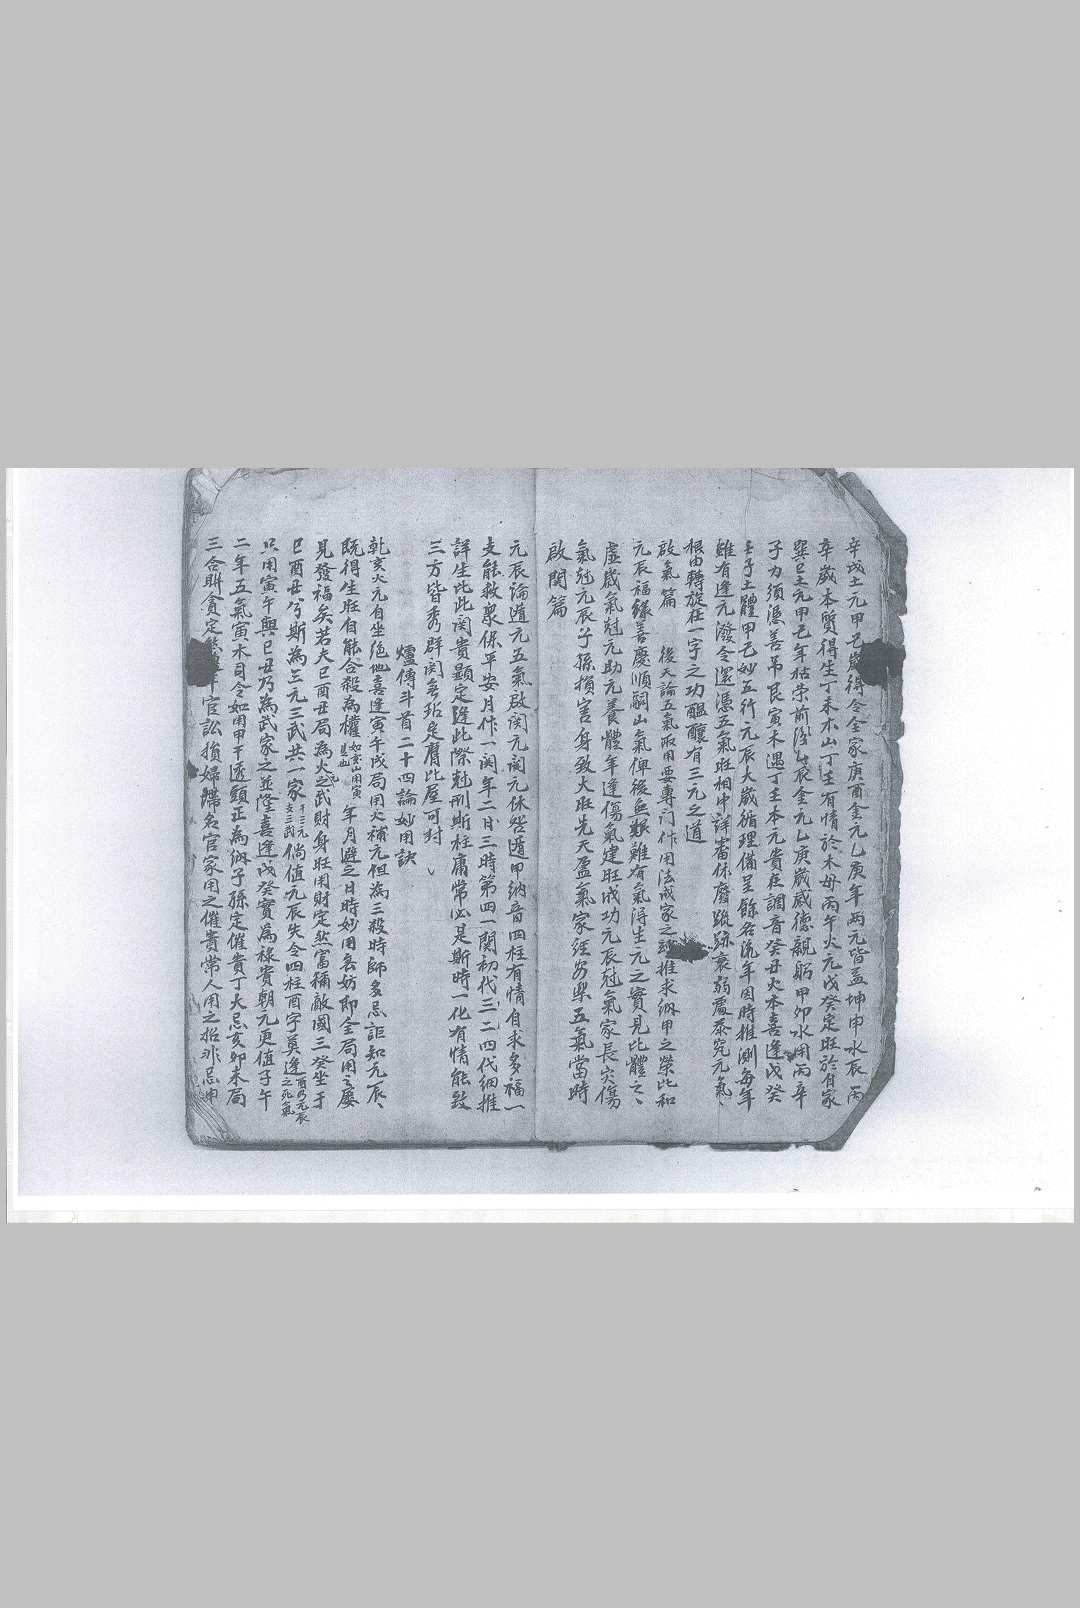 辛戌土元甲己歲得令全家庚酉金元乙庚年兩元皆益坤申水辰丙
辛歲本質得生丁未木山丁壬有情於木母丙午火元戊癸定旺於自家
巽巳土元甲己年枯荣前後辰金元乙庚歲感德親躬甲卯水用丙辛
子力須憑善吊艮寅木遇丁壬本元貴底調音癸丑火本喜逢戊癸
壬子土體甲己妙五行元辰大歲循理備呈餘各流年因時推測每年
雖有逢元潑令還憑五氣旺相中詳審休廢踪跡衰弱處恭究元氣、
根由轉旋在一字之功醞釀有三元之道
啟氣篇 後天論五氣取用要專门作用法成家之推求納甲之榮比和
元辰福緣善慶順嗣山氣俾後無艱難有氣得生元之實見比體之、
虛歲氣尅元助元養體年逢傷氣建旺成功元辰尅氣家長災傷
氣尅元辰子孫損害身致大旺先天盈氣家经安樂五氣當時
啟関篇
元辰論遁元五氣啟関元関元休咎遁甲納音四柱有情自求多福一
支能救眾保平安月作一関年二日三時第四一関初代三二四代細推
詳生比此関貴顯定逢此際尅刑斯柱庸常必是斯時一化有情能致
三方皆秀群関無玷足膺比屋可封、
爐傳斗首二十四論妙用訣
乾亥火元自坐绝他喜逢寅午戌局用火補元但為三殺時師多忌詎知元辰、
既得生旺自能合殺為權如亥山用寅是也年月避之日時妙用無妨即全局用之屡
見發福矣若夫巳酉丑局為火元之武財身旺用財定然富稱敵國三癸坐于
巳酉丑兮斯為三元三武共一家干三元支三武倘值元辰失令四柱酉字莫逢酉乃元辰之死氣
只用寅午與巳丑乃為武家之並隆喜逢戊癸實為祿貴朝元更值子午
二年五氣寅木司令如用甲干透顯正為納子孫定催貴丁大忌亥卯未局
三合聨貪定然年官訟損婦孀名官家用之催貴常人用之招非忌申